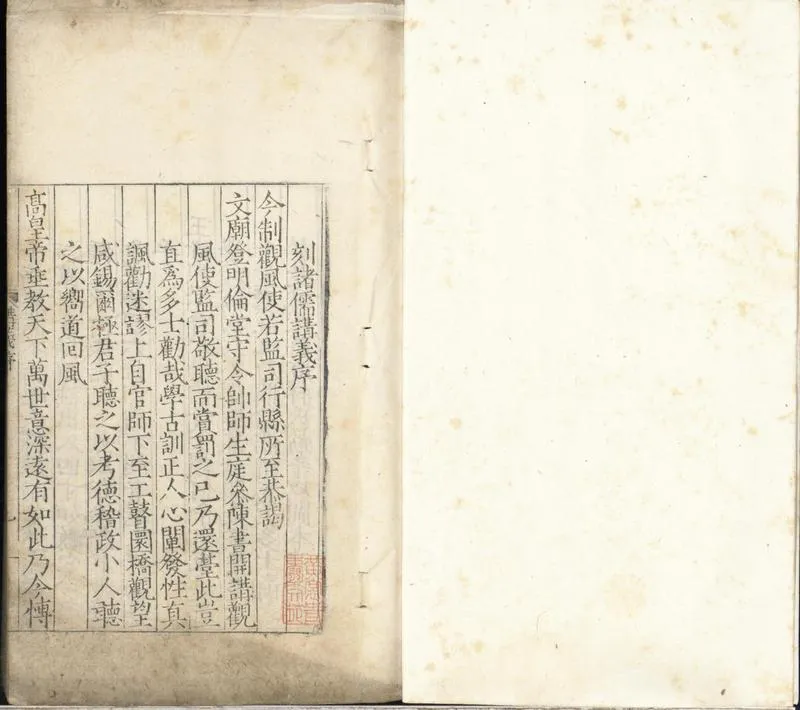 刻諸儒講義序
今制觀風使若監司行縣所至恭謁
文廟登明倫堂守令帥師生庭叅陳書開講觀
風使監司敬聽而賞罰之已乃還臺此豈
直爲多士勸哉學古訓正人心闡發性真
諷勸迷謬上自官師下至工瞽圜橋觀望
咸錫爾極君子聽之以考德稽政小人聽
之以嚮道回風
髙皇帝垂教天下萬世意深遠有如此乃今慱